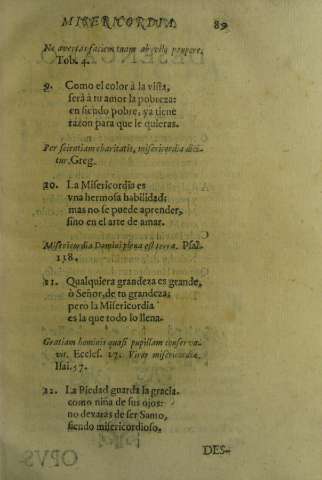 MISERICORDIA. 89
Ne avertas faciem tuam ab vllo paupere,
Tob. 4.
9. Como el color à la vista,
serà à tu amor la pobreza:
en siendo pobre, ya tiene
razon para que le quieras.
Per scientiam charitatis, misericordia dici-
tur. Greg.
20. La Misericordia es
vna hermosa habilidad;
mas no se puede aprender,
sino en el arte de amar.
Misericordia Domini plena est terra. Psal.
138.
11. Qualquiera grandeza es grande,
ò Señor, de tu grandeza;
pero la Misericordia
es la que todo lo llena.
Gratiam hominis quasi pupillam conserva-
vit. Eccles. 17. Viror misericordia.
Isai. 57.
22. La Piedad guarda la gracia.
como niña de sus ojos:
no dexaràs de ser Santo,
siendo misericordioso.
DES-